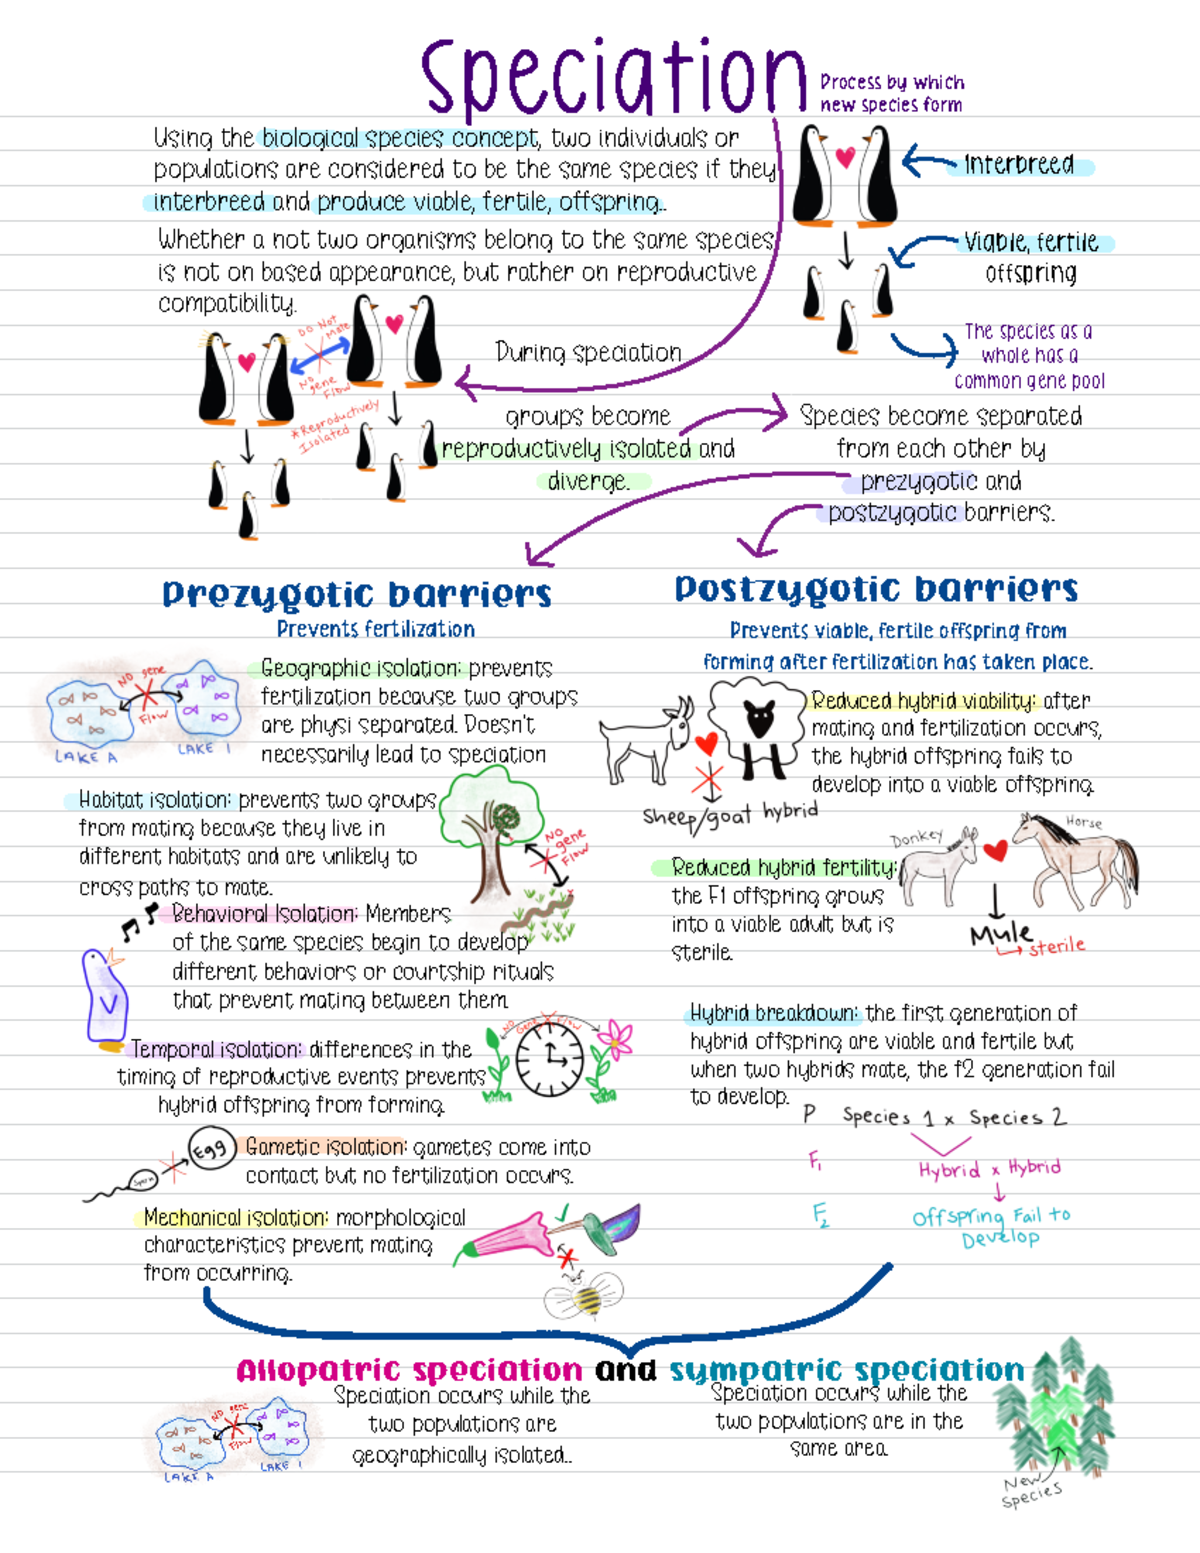 Speciation
Process by which
new species form
Using the biological species concept, two individuals or
populations are considered to be the same species if they
interbreed and produce viable, fertile, offspring..
Whether a not two organisms belong to the same species
is not on based appearance, but rather on reproductive
compatibility.
Interbreed
Viable, fertile
offspring
The species as a
whole has a
common gene pool
Do Not
Mate
No
gene
Flow
*Reproductively
Isolated
During speciation
groups become
reproductively isolated and
diverge.
Species become separated
from each other by
prezygotic and
postzygotic barriers.
Prezygotic barriers
Prevents fertilization
No gene
Flow
LAKE A
LAKE 1
Geographic isolation: prevents
fertilization because two groups
are physi separated. Doesn't
necessarily lead to speciation
Habitat isolation: prevents two groups
from mating because they live in
different habitats and are unlikely to
cross paths to mate.
No
gene
Flow
Behavioral Isolation: Members
of the same species begin to develop
different behaviors or courtship rituals
that prevent mating between them.
Temporal isolation: differences in the
timing of reproductive events prevents
hybrid offspring from forming.
No Gene Flow
Egg
Sperm
Gametic isolation: gametes come into
contact but no fertilization occurs.
Mechanical isolation: morphological
characteristics prevent mating
from occurring.
Postzygotic barriers
Prevents viable, fertile offspring from
forming after fertilization has taken place.
Reduced hybrid viability: after
mating and fertilization occurs,
the hybrid offspring fails to
develop into a viable offspring.
Sheep/goat hybrid
Reduced hybrid fertility:
the F1 offspring grows
into a viable adult but is
sterile.
Donkey
Horse
Mule
sterile
Hybrid breakdown: the first generation of
hybrid offspring are viable and fertile but
when two hybrids mate, the f2 generation fail
to develop.
P Species 1 x Species 2
F1 Hybrid x Hybrid
F2 Offspring Fail to
Develop
Allopatric speciation and sympatric speciation
Speciation occurs while the
two populations are
geographically isolated..
No gene
Flow
LAKE A
LAKE 1
Speciation occurs while the
two populations are in the
same area.
New
Species